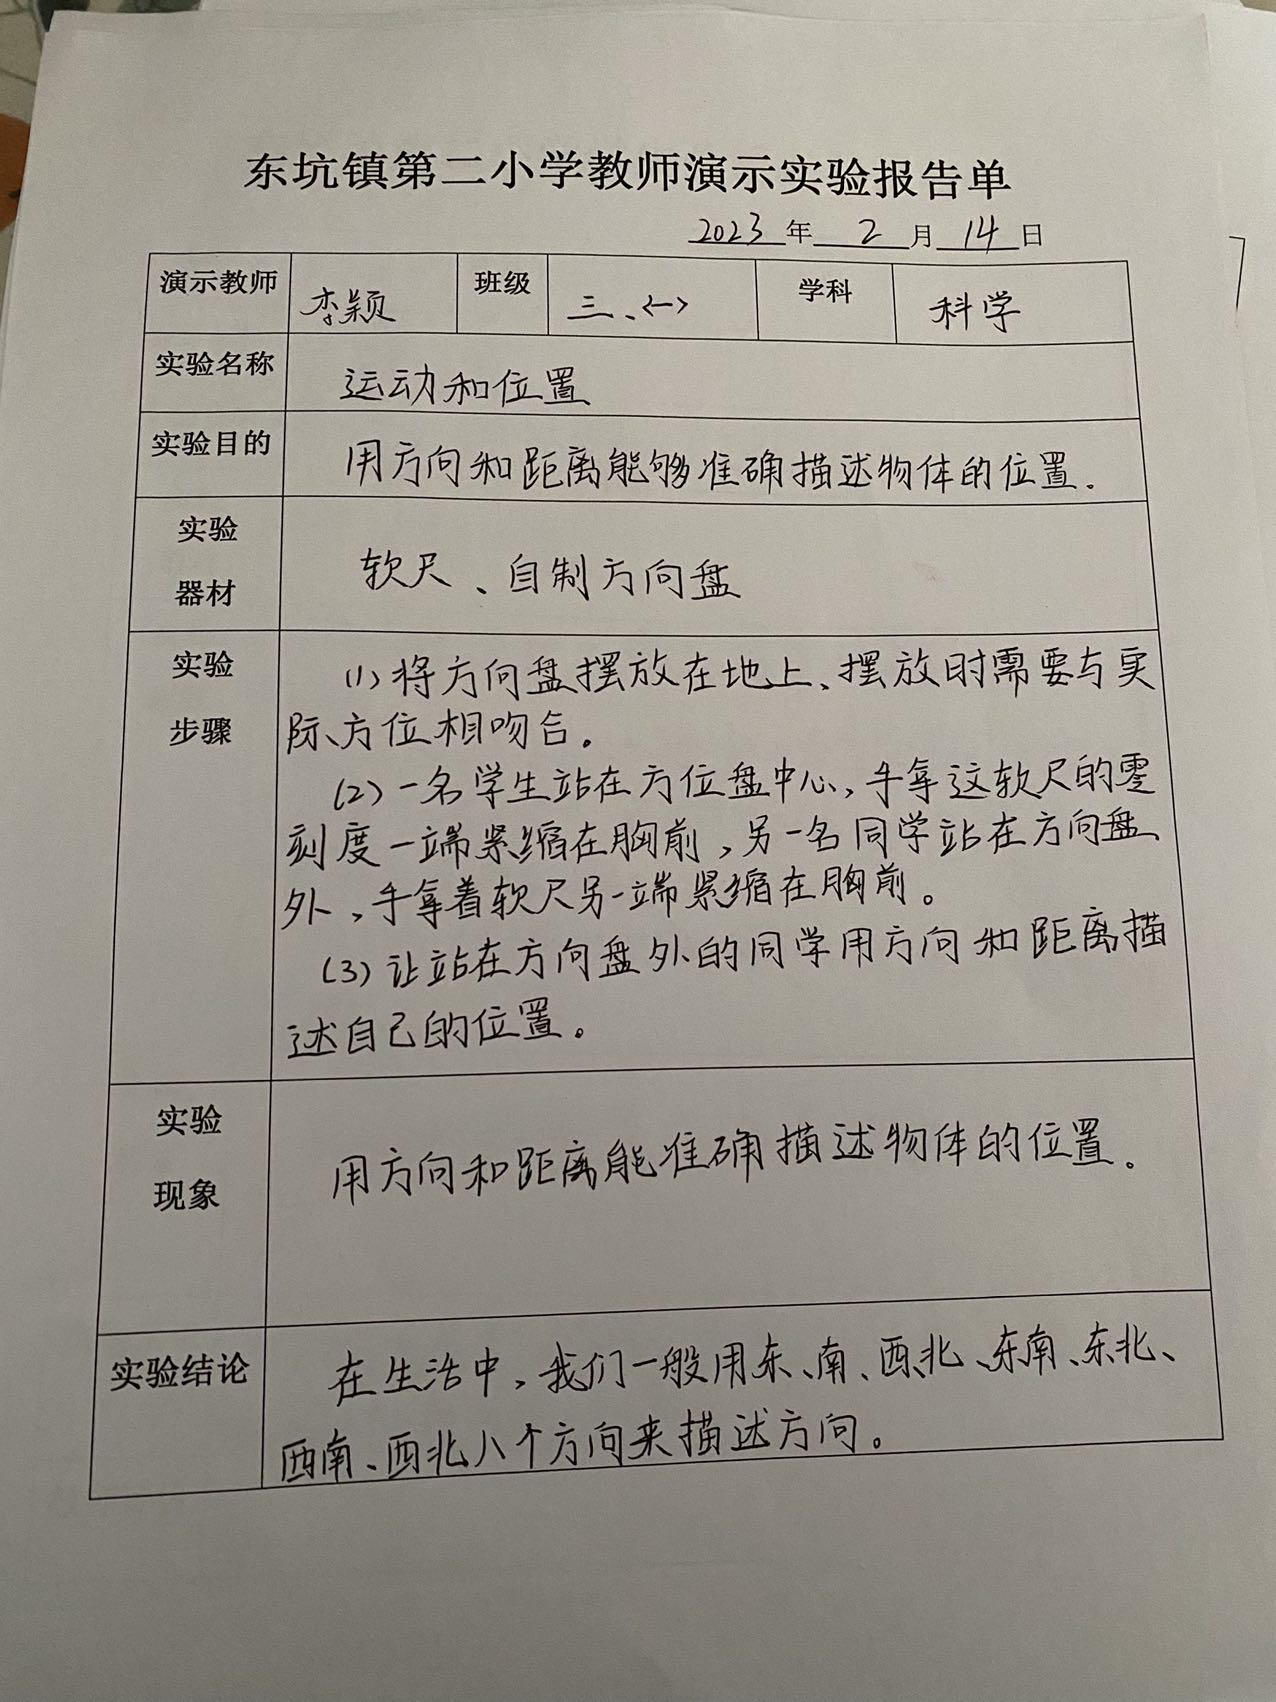 东坑镇第二小学教师演示实验报告单
2023年 2 月 14 日
演示教师 李颖 班级 三、<一> 学科 科学
实验名称 运动和位置
实验目的 用方向和距离能够准确描述物体的位置.
实验
器材
软尺、自制方向盘
实验
步骤
(1)将方向盘摆放在地上、摆放时需要与实
际方位相吻合。
(2)一名学生站在方位盘中心,手拿这软尺的零
刻度一端紧缩在胸前,另一名同学站在方向盘
外,手拿着软尺另一端紧缩在胸前。
(3)让站在方向盘外的同学用方向和距离描
述自己的位置。
实验
现象
用方向和距离能准确描述物体的位置。
实验结论
在生活中,我们一般用东、南、西、北、东南、东北、
西南、西北八个方向来描述方向。